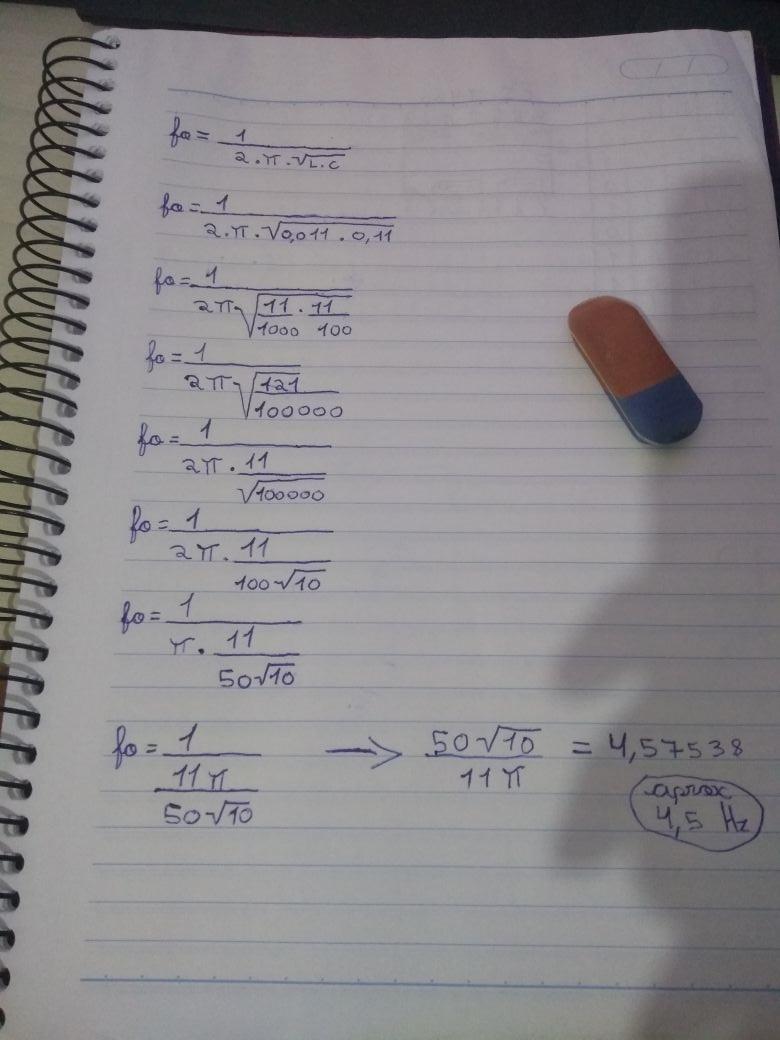 fo = 1 / 2.π.√L.C
fo = 1 / 2.π.√0,011 . 0,11
fo = 1 / 2π√11/1000 . 11/100
fo = 1 / 2π√121/100000
fo = 1 / 2π . 11/√100000
fo = 1 / 2π . 11/100√10
fo = 1 / π . 11/50√10
fo = 1 / 11π/50√10 → 50√10 / 11π = 4,57538
aprox
4,5 Hz